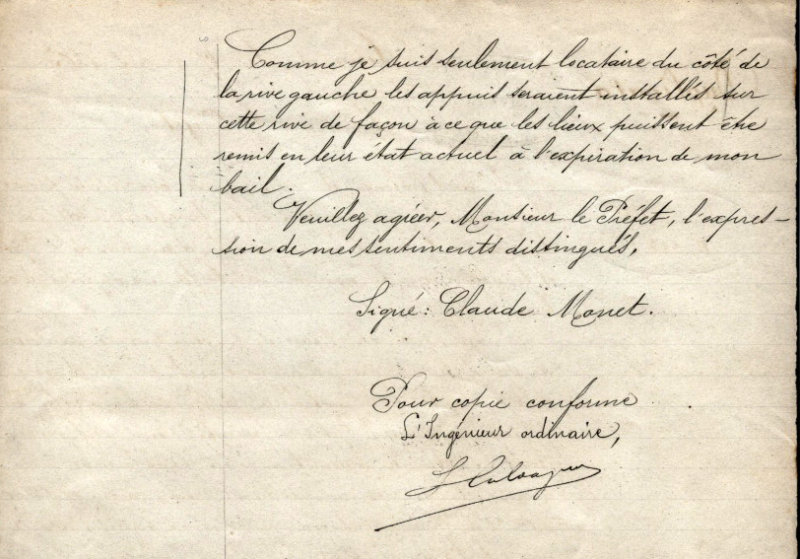 Comme je suis seulement locataire du côté de
la rive gauche les appuis seraient installés sur
cette rive de façon à ce que les lieux puissent être
remis en leur état actuel à l'expiration de mon
bail.
Veuillez agréer, Monsieur le Préfet, l'expres-
sion de mes sentiments distingués,
Signé : Claude Monet.
Pour copie conforme
L'Ingénieur ordinaire,